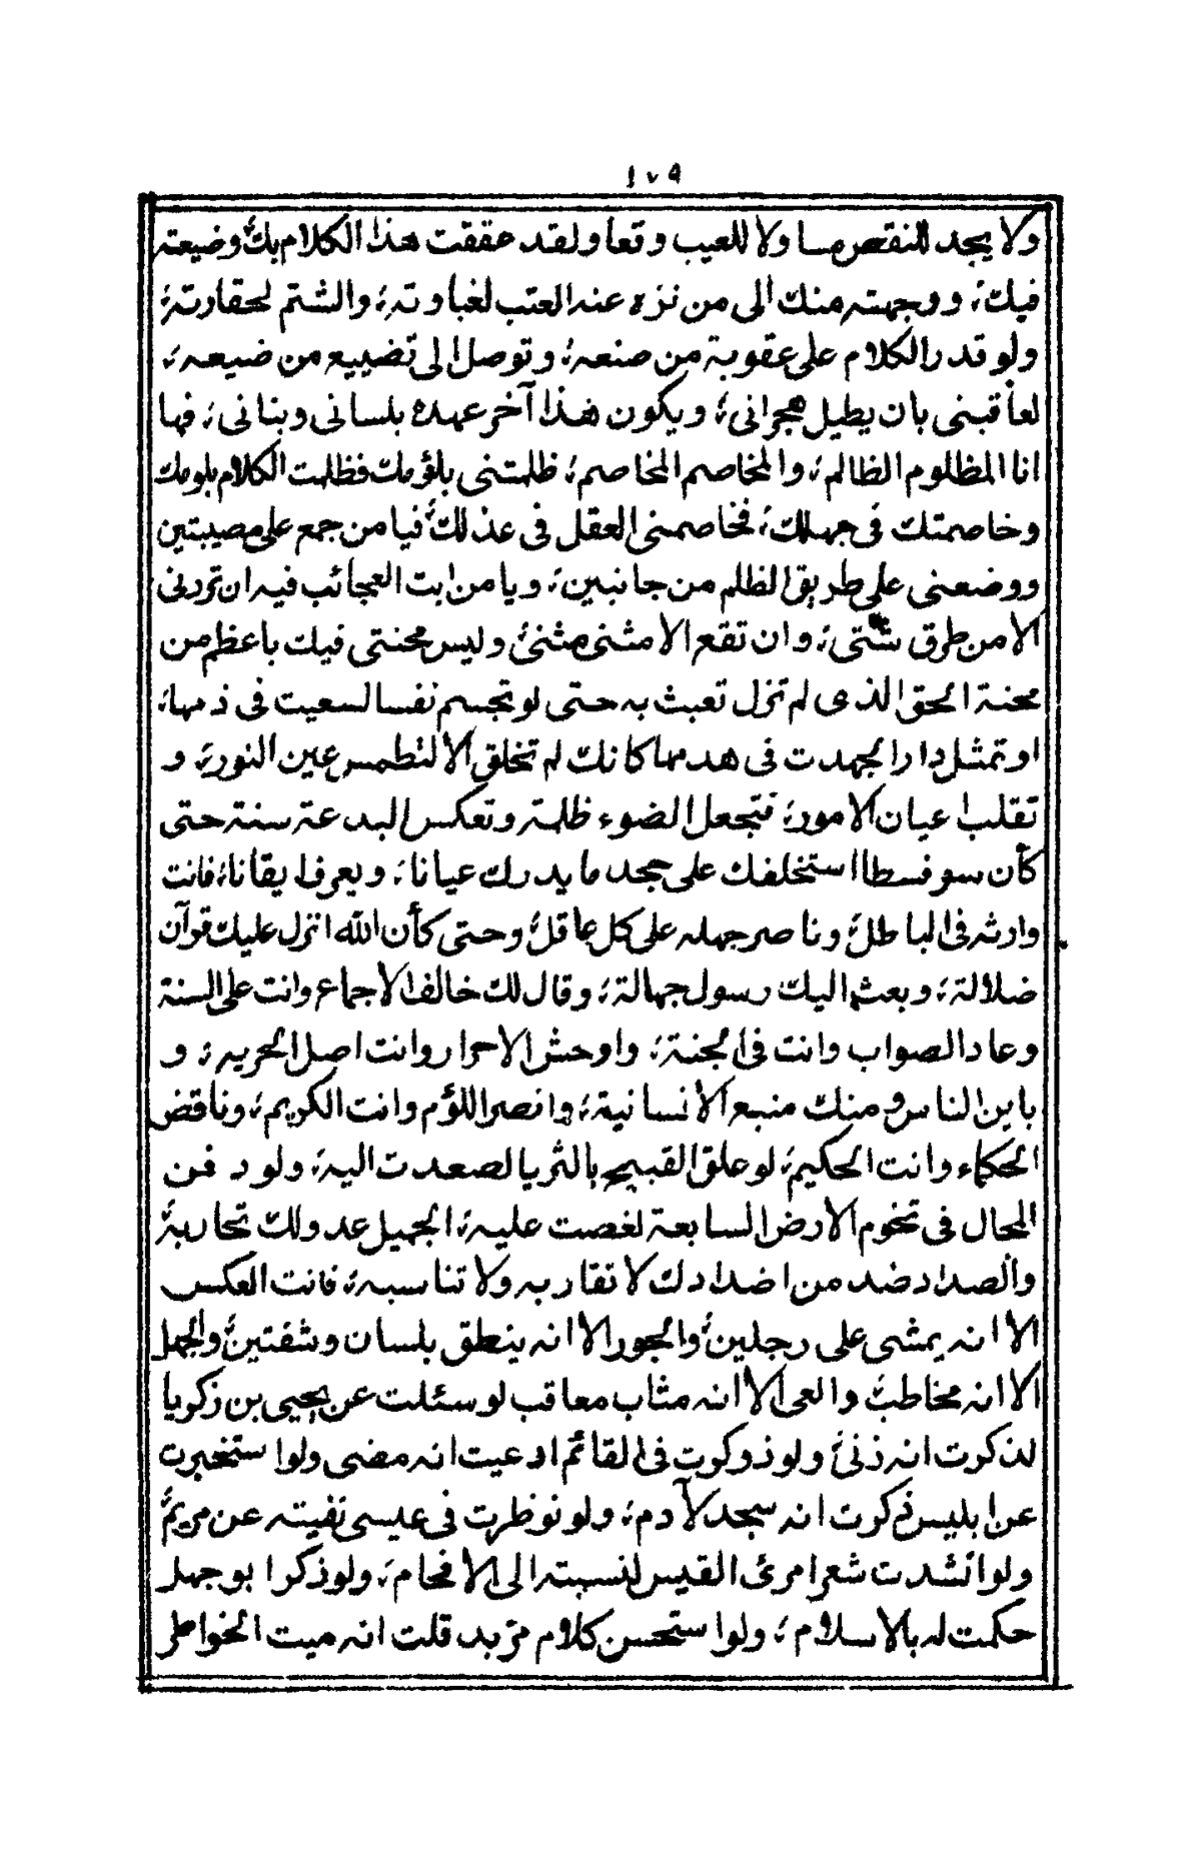 ١٧٩
ولا يجد للنقص مسا ولا للعيب وقعا ولقد عققت هذا الكلام بك؛ وضيعته
فيك؛ ووجهته منك الى من نزه عنه العتب لغباوته؛ والشتم لحقارته؛
ولو قدر الكلام على عقوبة من صنعه؛ وتوصل الى تضييع من ضيعه؛
لعاقبنى بان يطيل هجرانى؛ ويكون هذا آخر عهده بلسانى وبنانى؛ فها
انا المظلوم الظالم؛ والمخاصم المخاصم؛ ظلمتنى بلؤمك فظلمت الكلام بلومك
وخاصمتك فى جهلك؛ فخاصمنى العقل فى عذلك؛ فيا من جمع على مصيبتين
ووضعنى على طريق الظلم من جانبين؛ ويا من ابت العجائب فيه ان تردنى
الا من طرق شتى؛ وان تقع الا مثنى مثنى؛ وليس محنتى فيك باعظم من
محنة الحق الذى لم تزل تعبث به حتى لو تجسم نفسا لسعيت فى ذمها؛
او تمثل دارا لجهدت فى هدمها كانك لم تخلق الا لتطمس عين النور؛ و
تقلب عيان الامور؛ فتجعل الضوء ظلمة وتعكس البدعة سنة حتى
كأن سوفسطا استخلفك على جحد ما يدرك عيانا؛ ويعرف ايقانا؛ فانت
وارثه فى الباطل؛ وناصر جهله على كل عاقل؛ وحتى كأن الله انزل عليك قرآن
ضلالة؛ وبعث اليك رسول جهالة؛ وقال لك خالف الاجماع وانت على السنة
وعاد الصواب وانت فى الجنة؛ واوحش الاحرار وانت اصل الحريه؛ و
باين الناس ومنك منبع الانسانية؛ وانصر اللؤم وانت الكريم؛ وناقض
الحكماء وانت الحكيم؛ لو علق القبيح بالثريا لصعدت اليه؛ ولو دفن
المحال فى تخوم الارض السابعة لغصت عليه؛ الجميل عدو لك تحاربه؛
والصداد ضد من اضدادك لا تقاربه ولا تناسبه؛ فانت العكس
الا انه يمشى على رجلين؛ والجور الا انه ينطق بلسان وشفتين؛ والجهل
الا انه مخاطب؛ والعى الا انه مثاب معاقب لو سئلت عن يحيى بن زكريا
لذكرت انه زنى؛ ولو ذوكرت فى القائم ادعيت انه مضى ولو استخبرت
عن ابليس ذكرت انه سجد لآدم؛ ولو نوظرت فى عيسى نفيته عن مريم؛
ولو انشدت شعر امرئ القيس لنسبته الى الافحام؛ ولو ذكر ابو جهل
حكمت له بالاسلام؛ ولو استحسن كلام مزبد قلت انه ميت الخواطر